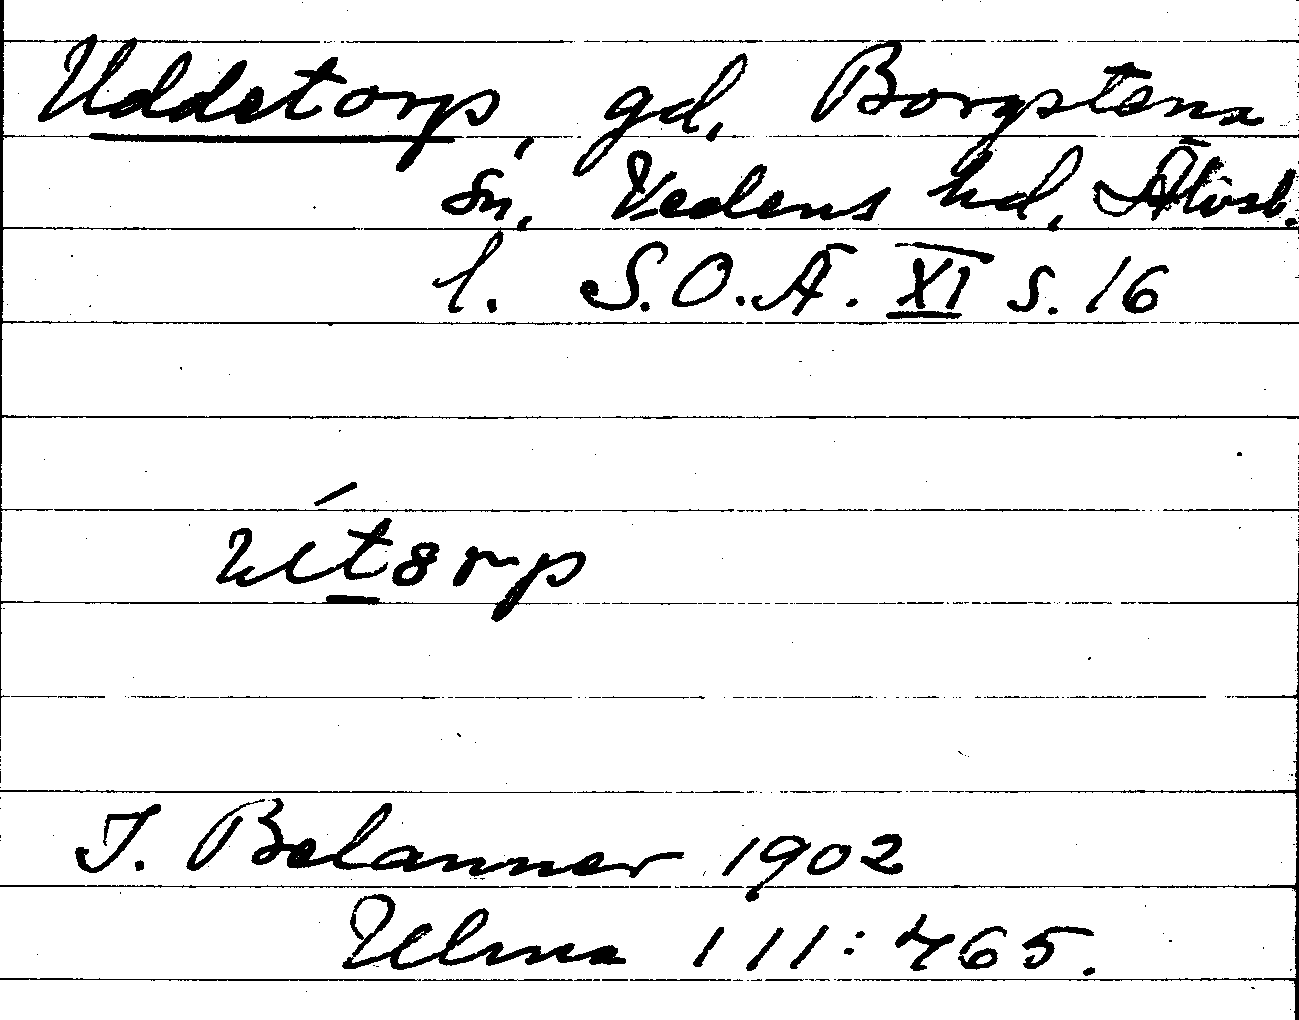 Uddetorp, gd, Borgstena
sn, Vedens hd, Älvsb.
l. S.O.Ä. XI s. 16
J. Belanner 1902
Ulma 111:465.